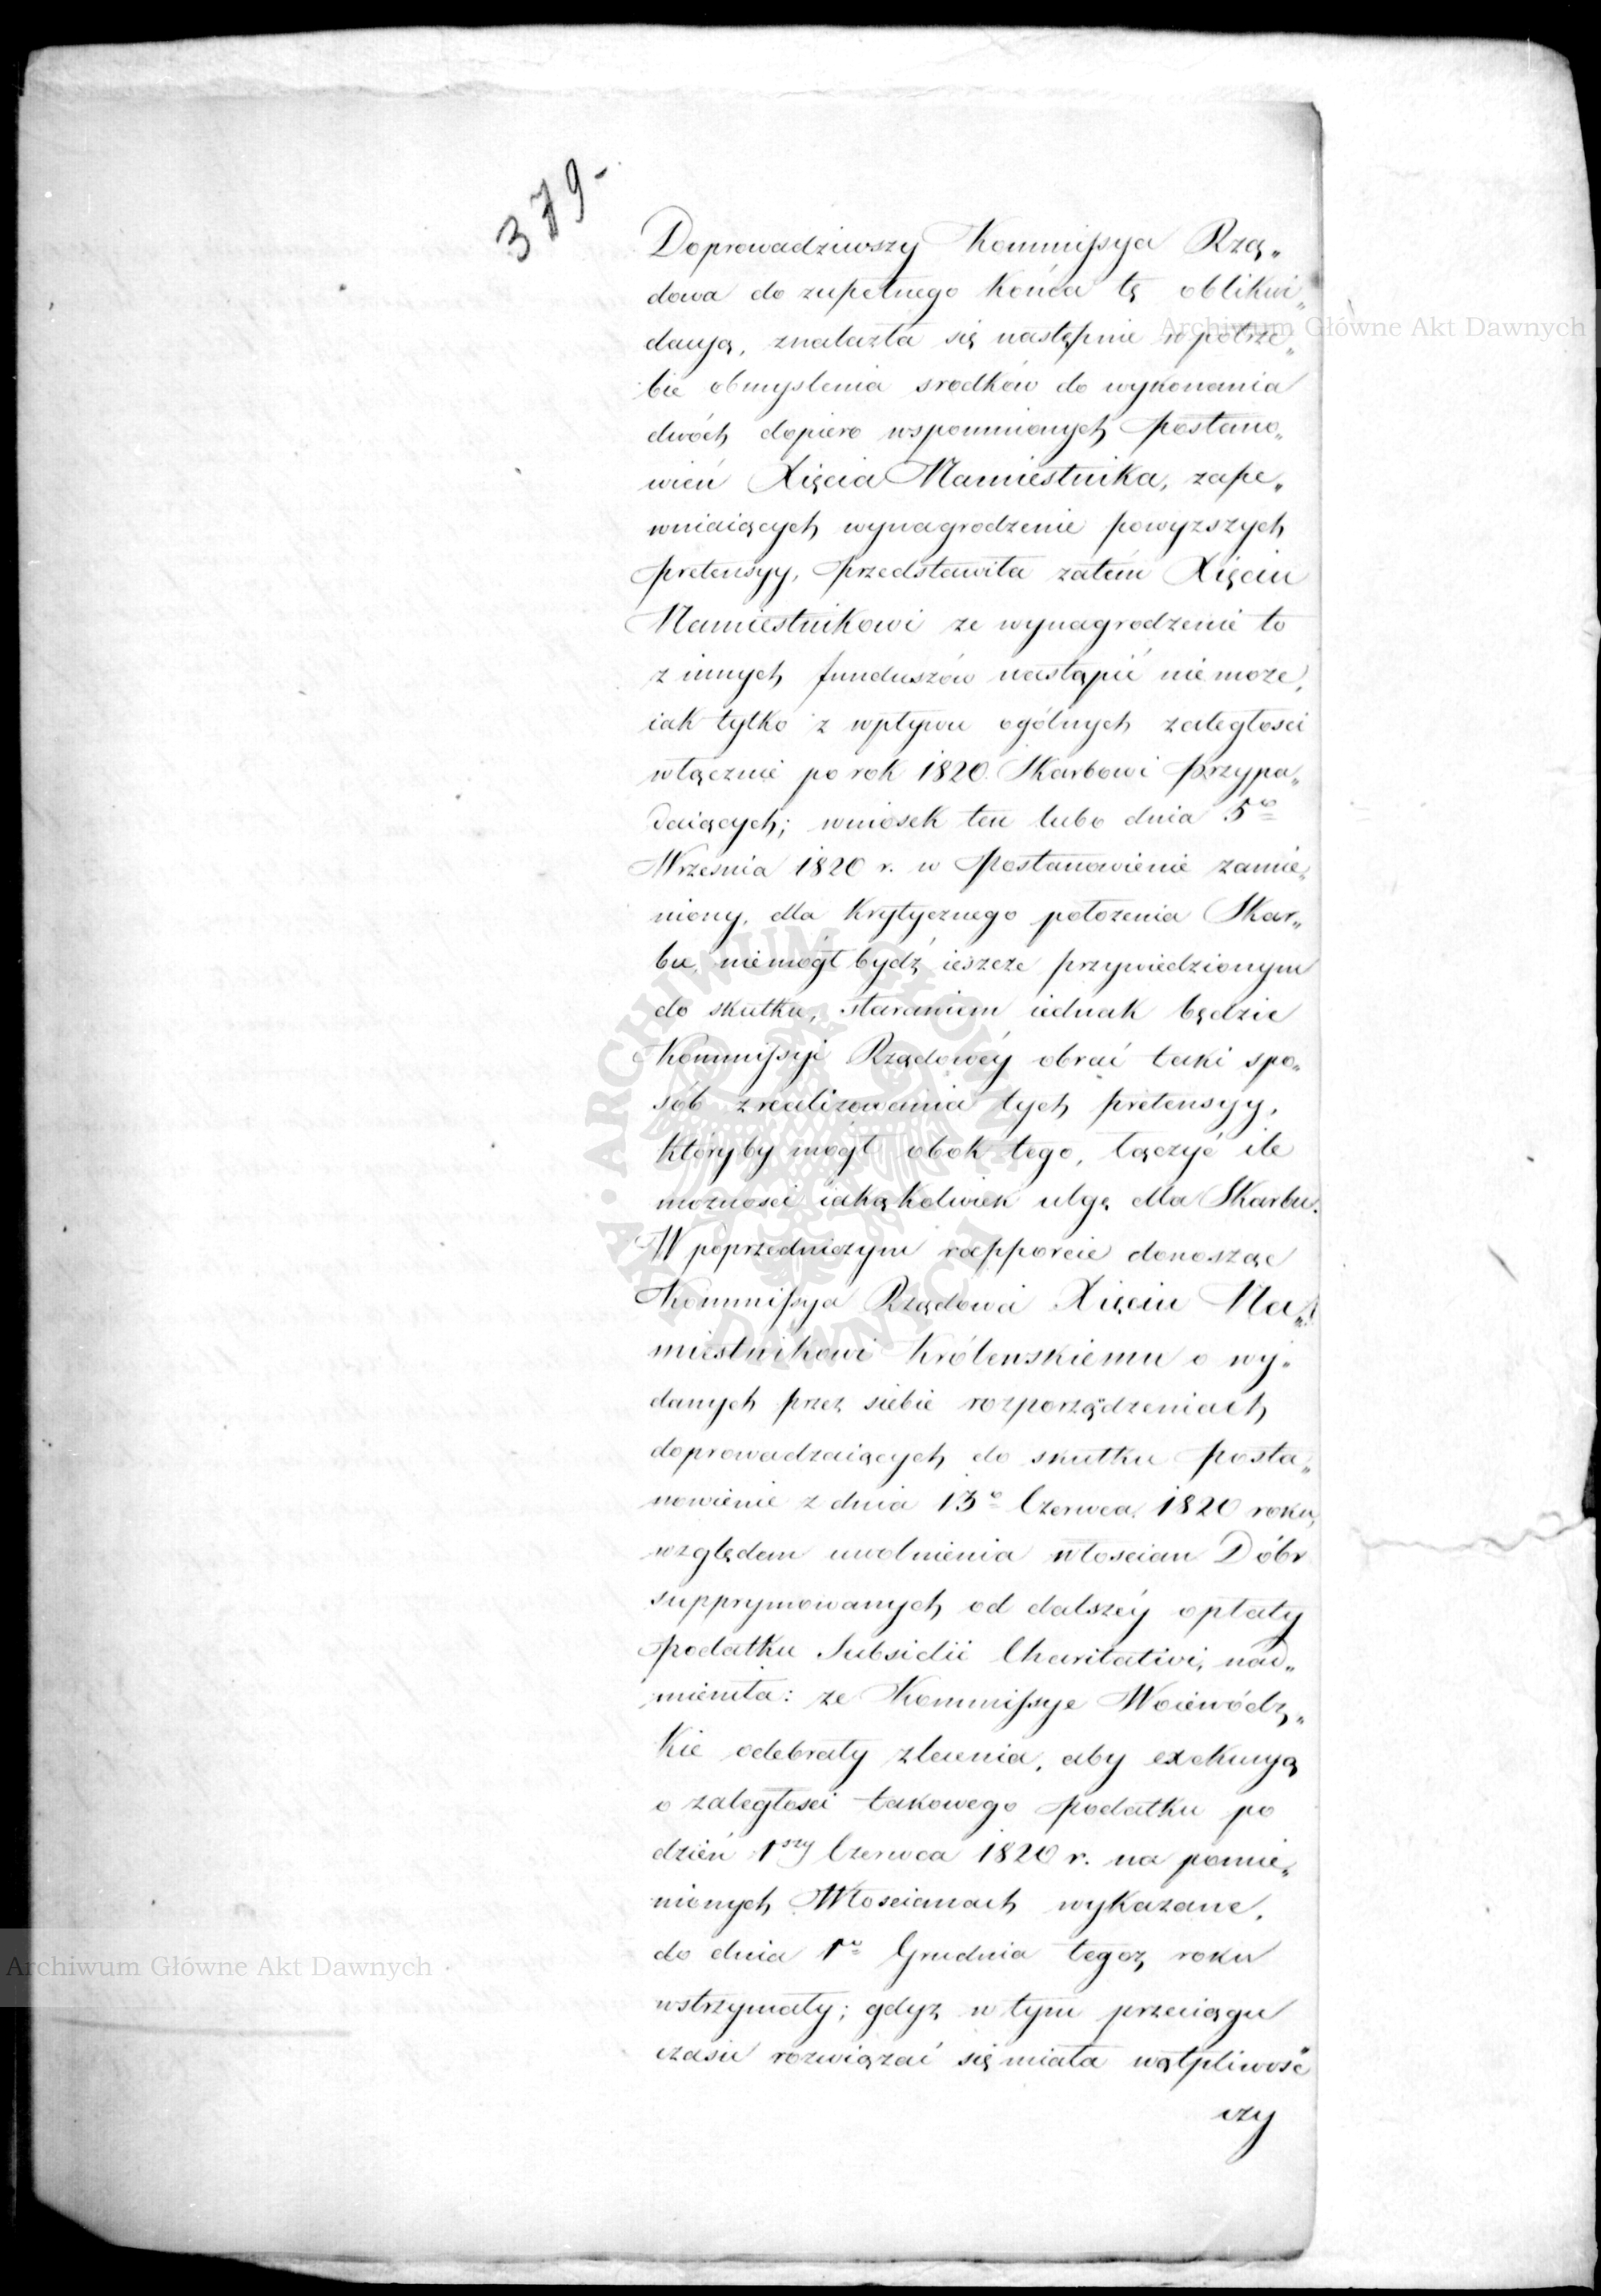 379-
Doprowadziwszy Kommissya Rzą„
dowa do zupełnego końca tę oblikwi„
dacyą, znalazła się następnie w potrze„
bie obmyslenia srodków do wykonania
dwóch dopiero wspomnionych postano„
wień Xięcia Namiestnika, zape„
wniaiących wynagrodzenie powyzszych
pretensyy, przedstawiła zatém Xięciu
Namiestnikowi ze wynagrodzenie to
z innych funduszów nastąpić niemoze,
iak tylko z wpływu ogólnych zaległosci
włącznie po rok 1820 Skarbowi przypa„
daiących; wniosek ten lubo dnia 5o
Września 1820 r. w postanowienie zamie„
niony, dla krytycznego położenia Skar„
bu, niemógł bydź ieszcze przywiedzionym
do skutku, staraniem iednak będzie
Kommissyi Rządowéy obrać taki spo„
sób zrealizowania tych pretensyy,
któryby mógł obok tego, łączyć ile
moznosci iakąkolwiek ulgę dla Skarbu.
W poprzedniczym rapporcie donosząc
Kommissya Rządowa Xięciu Na„
miestnikowi Królewskiemu o wy„
danych przez siebie rozporządzeniach
doprowadzaiących do skutku posta„
nowienie z dnia 13o Czerwca 1820 roku,
względem uwolnienia włoscian Dóbr
supprymowanych od dalszéy opłaty
podatku Subsidii Charitativi, nad„
mieniła: ze Kommissye Woiewódz„
kie odebrały zlecenia, aby exekucyą
o zaległosci takowego podatku po
dzień 1szy Czerwca 1820 r. na pomie„
nionych Włoscianach wykazane,
do dnia 1o Grudnia tegoz roku
wstrzymały; gdyz w tym przeciągu
czasu rozwiązać się miała wątpliwość
czy
Archiwum Główne Akt Dawnych
Archiwum Główne Akt Dawnych
ARCHIWUM GŁÓWNE AKT DAWNYCH